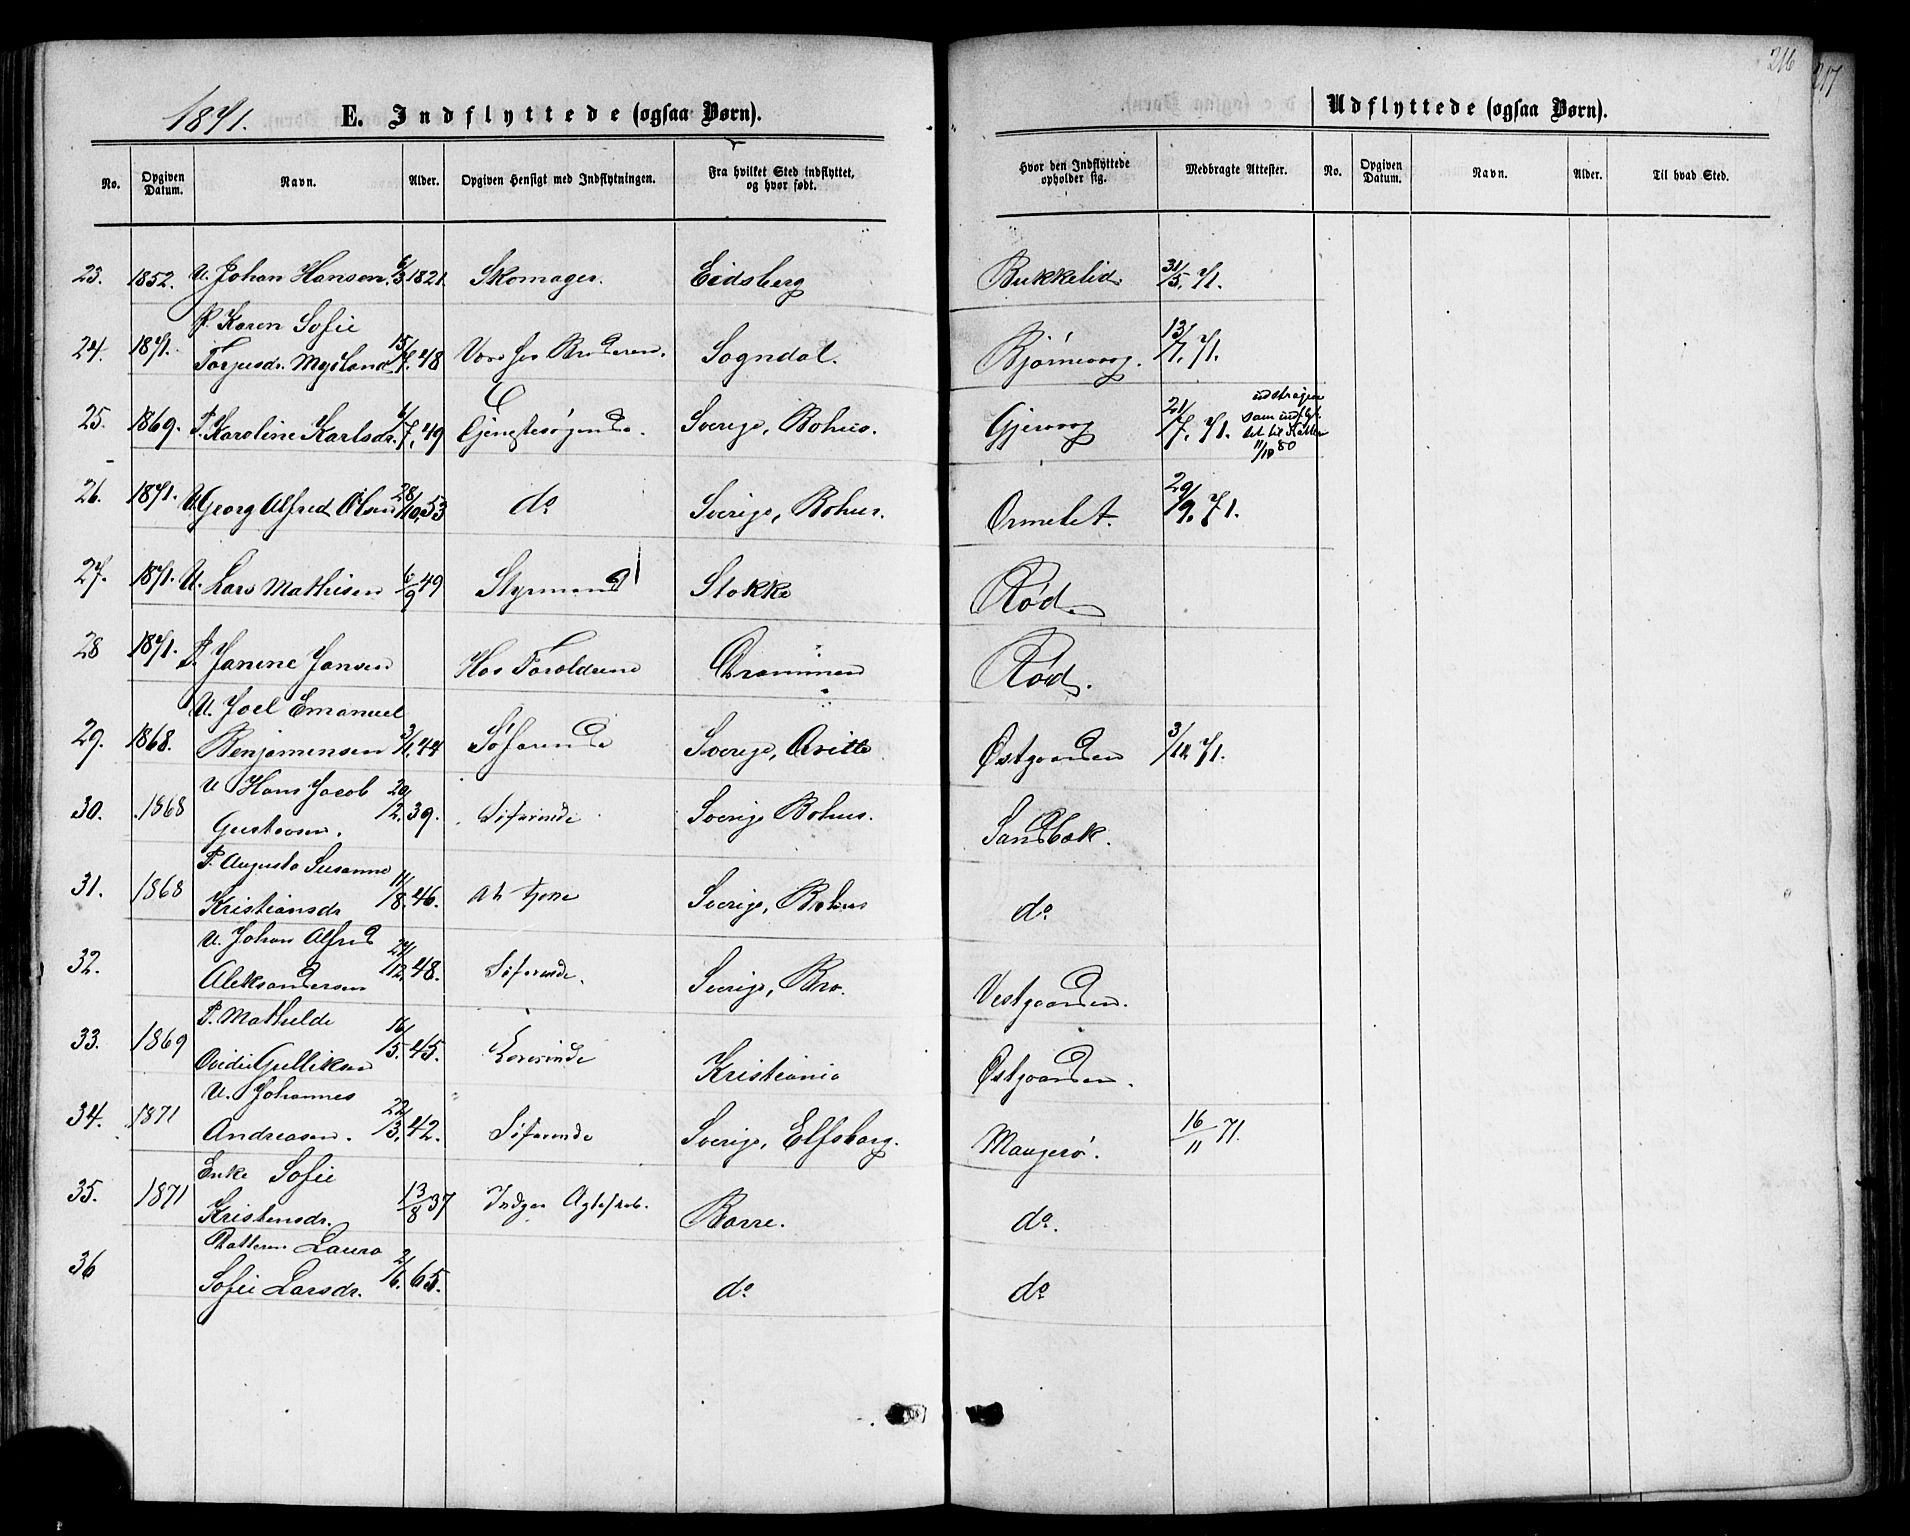 216
217
1871. E. Indflyttede (ogsaa Børn).
Udflyttede (ogsaa Børn).
No. Opgiven Datum. Navn. Alder. Opgiven Hensigt med Indflytningen. Fra hvilket Sted indflyttet, og hvor født. Hvor den Indflyttede opholder sig. Medbragte Attester. No. Opgiven Datum. Navn. Alder. Til hvad Sted.
23. 1852. U. Johan Hansen. 6/3 1821. Skomager. Eidsberg Bukkelid 31/5. 71.
P. Karen Sofie
24. 1871. Torjusdr. Mysland 15/7. 48 Være hos Broderen. Sogndal. Bjørnevaag. 13/7. 71.
25. 1869. P. Karoline Karlsdr. 6/7. 49 Tjenestesøgende. Sverige, Bohus. Gjervaag 21/7. 71. udstrøgen
som indflyt
tet til Nøtterø
11/10 80
26. 1871. U. Georg Alfred Olsen 28/10. 53 do Sverige, Bohus. Ormelet. 29/9. 71.
27. 1871. U. Lars Mathisen 6/9 49 Styrmand Stokke Rød.
28 1871. P. Janine Jansen Hos Foreldrene Drammen Rød.
U. Joel Emanuel
29. 1868. Benjamensen 3/1. 44 Søfarende Sverige, Qville Østgaarden 3/10. 71.
U Hans Jacob
30. 1868 Gustavsen. 20/12. 39. Søfarende Sverige Bohus. Sandbæk.
P. Augusta Susanne
31. 1868 Kristiansdr 11/8. 46. At tjene Sverige, Bohus do
U. Johan Alfred
32. Aleksandersen 24/12. 48. Søfarende. Sverige, Bro. Vestgaarden.
P. Mathilde
33. 1869 Ovidie Gulliksen 16/5. 45. Lærerinde Kristiania Østgaarden.
U. Johannes
34. 1871 Andreasen. 22/3. 42. Søfarende Sverige, Elfsborg. Maugerø. 16/11 71.
Enke Sofie
35. 1871 Kristensdr. 13/8 37 Indgaa Ægteskab. Borre. do.
Datteren Laura
36 Sofie Larsdr. 2/6. 65. do do